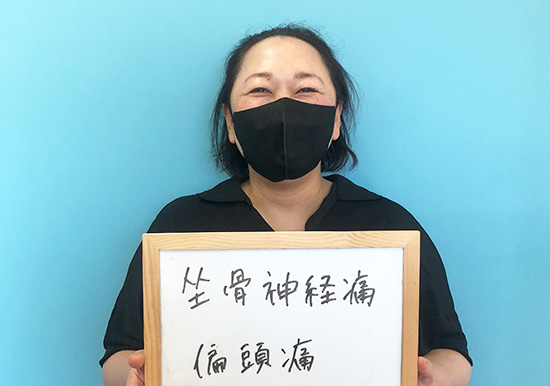 坐骨神経痛
偏頭痛